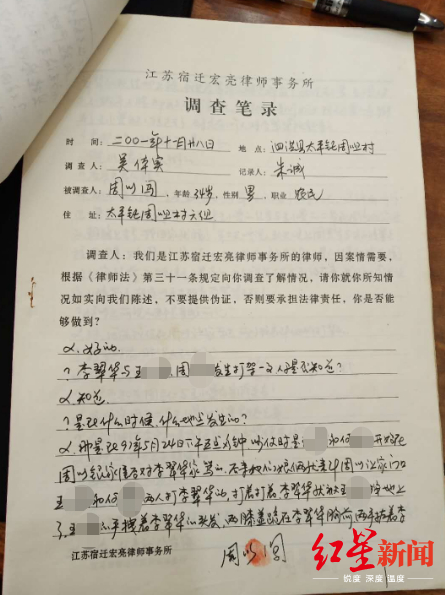 江苏宿迁宏亮律师事务所
调查笔录
时 间：二00一年十一月廿八日 地 点：泗洪县太平镇周咀村
调 查 人：吴伟实 记录人：朱诚
被调查人：周以国，年龄34岁，性别 男，职业 农民
住 址：太平镇周咀村六组
调查人：我们是江苏宿迁宏亮律师事务所的律师，因案情需要，
根据《律师法》第三十一条规定向你调查了解情况，请你就你所知情
况如实向我们陈述，不要提供伪证，否则要承担法律责任，你是否能
够做到？
好的。
？李翠华与王 、周 发生打架一事你是否知道？
知道
？是在什么时候、什么地点发生的？
那是在97年5月24日下午
周以 家 对李翠华家
王 和何 两人打李翠华的，打着打着李翠华
了，王 手拽着李翠华的头发，两膝盖跪在李翠华胸前，两手
江苏宿迁宏亮律师事务所
周以国
红星新闻
锐度 深度 温度